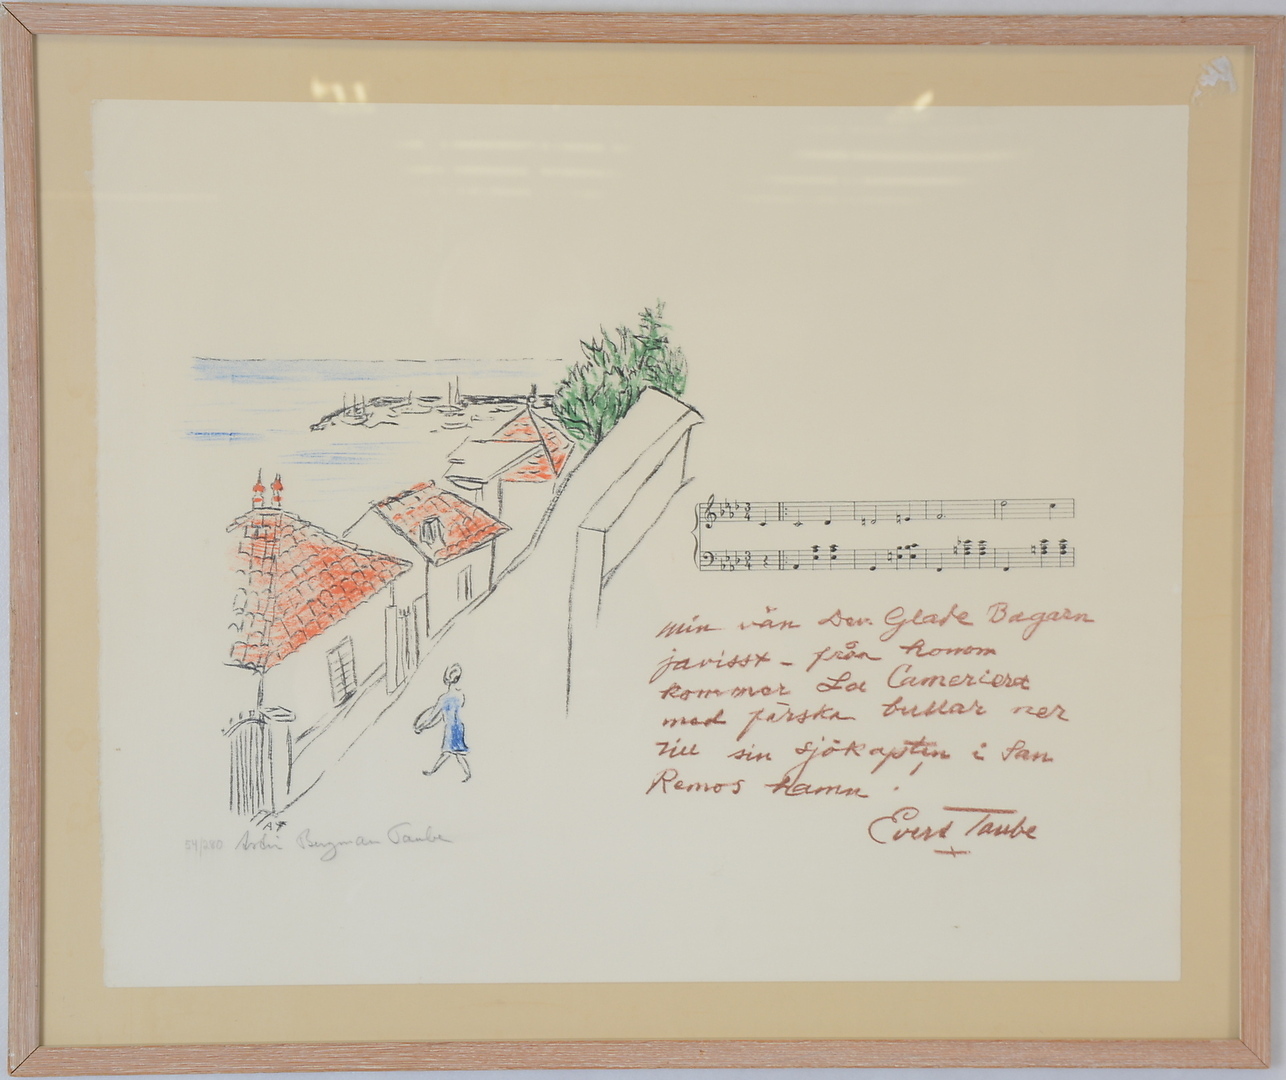 Min vän Den Glade Bagarn
javisst – från honom
kommer La Cameriera
med färska bullar ner
till sin sjökapten i San
Remos hamn.
Evert Taube
AT
54/280 Astri Bergman Taube